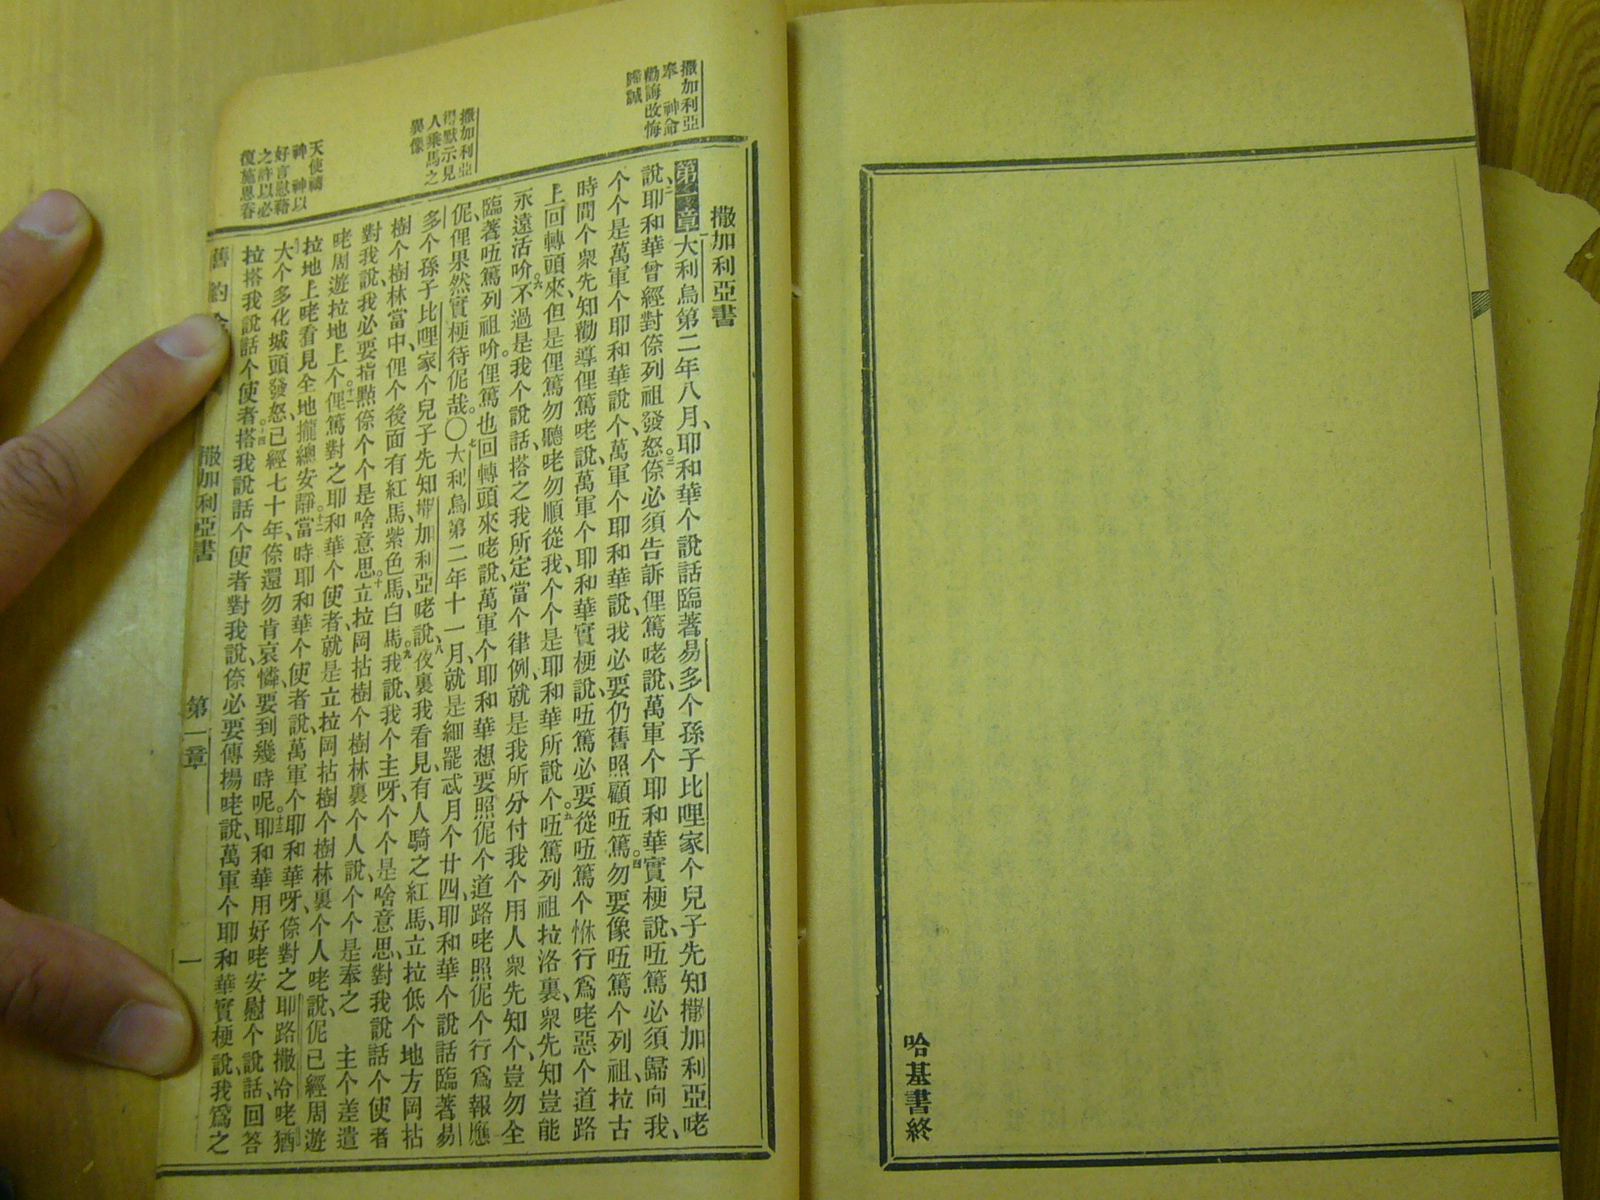 哈基書終
撒加利亞
奉 神命
勸誨改悔
歸誠
撒加利亞
得默示見
人乘馬之
異像
天使禱
神 神以
好言慰藉
之許以必
復施恩眷
撒加利亞書
第一章 大利烏第二年八月、耶和華个說話臨著易多个孫子比哩家个兒子先知撒加利亞咾
說、二耶和華曾經對倷列祖發怒。三倷必須告訴俚篤咾說、萬軍个耶和華實梗說、㕶篤必須歸向我、
个个是萬軍个耶和華說个、萬軍个耶和華說、我必要仍舊照顧㕶篤。四勿要像㕶篤个列祖、拉古
時間个衆先知勸導俚篤咾說、萬軍个耶和華實梗說、㕶篤必要從㕶篤个恘行爲咾惡个道路
上回轉頭來、但是俚篤勿聽咾勿順從我、个个是耶和華所說个。五㕶篤列祖拉洛裏、衆先知豈能
永遠活吤。六不過是我个說話、搭之我所定當个律例、就是我所分付我个用人衆先知个、豈勿全
臨著㕶篤列祖吤。俚篤也回轉頭來咾說、萬軍个耶和華想要照伲个道路咾照伲个行爲報應
伲、俚果然實梗待伲哉。〇七大利烏第二年十一月、就是細罷忒月个廿四、耶和華个說話臨著易
多个孫子比哩家个兒子先知撒加利亞咾說、八夜裏我看見有人騎之紅馬、立拉低个地方岡拈
樹个樹林當中、俚个後面有紅馬紫色馬白馬。九我說、我个主呀、个个是啥意思、對我說話个使者
對我說、我必要指點倷个个是啥意思。十立拉岡拈樹个樹林裏个人說、个个是奉之 主个差遣
咾周遊拉地上个。十一俚篤對之耶和華个使者、就是立拉岡拈樹个樹林裏个人咾說、伲已經周遊
拉地上咾看見全地攏總安靜。十二當時耶和華个使者說、萬軍个耶和華呀、倷對之耶路撒冷咾猶
大个多化城頭發怒、已經七十年、倷還勿肯哀憐、要到幾時呢。十三耶和華用好咾安慰个說話、回答
拉搭我說話个使者。十四搭我說話个使者對我說、倷必要傳揚咾說、萬軍个耶和華實梗說、我爲之
舊約全 撒加利亞書 第一章 一